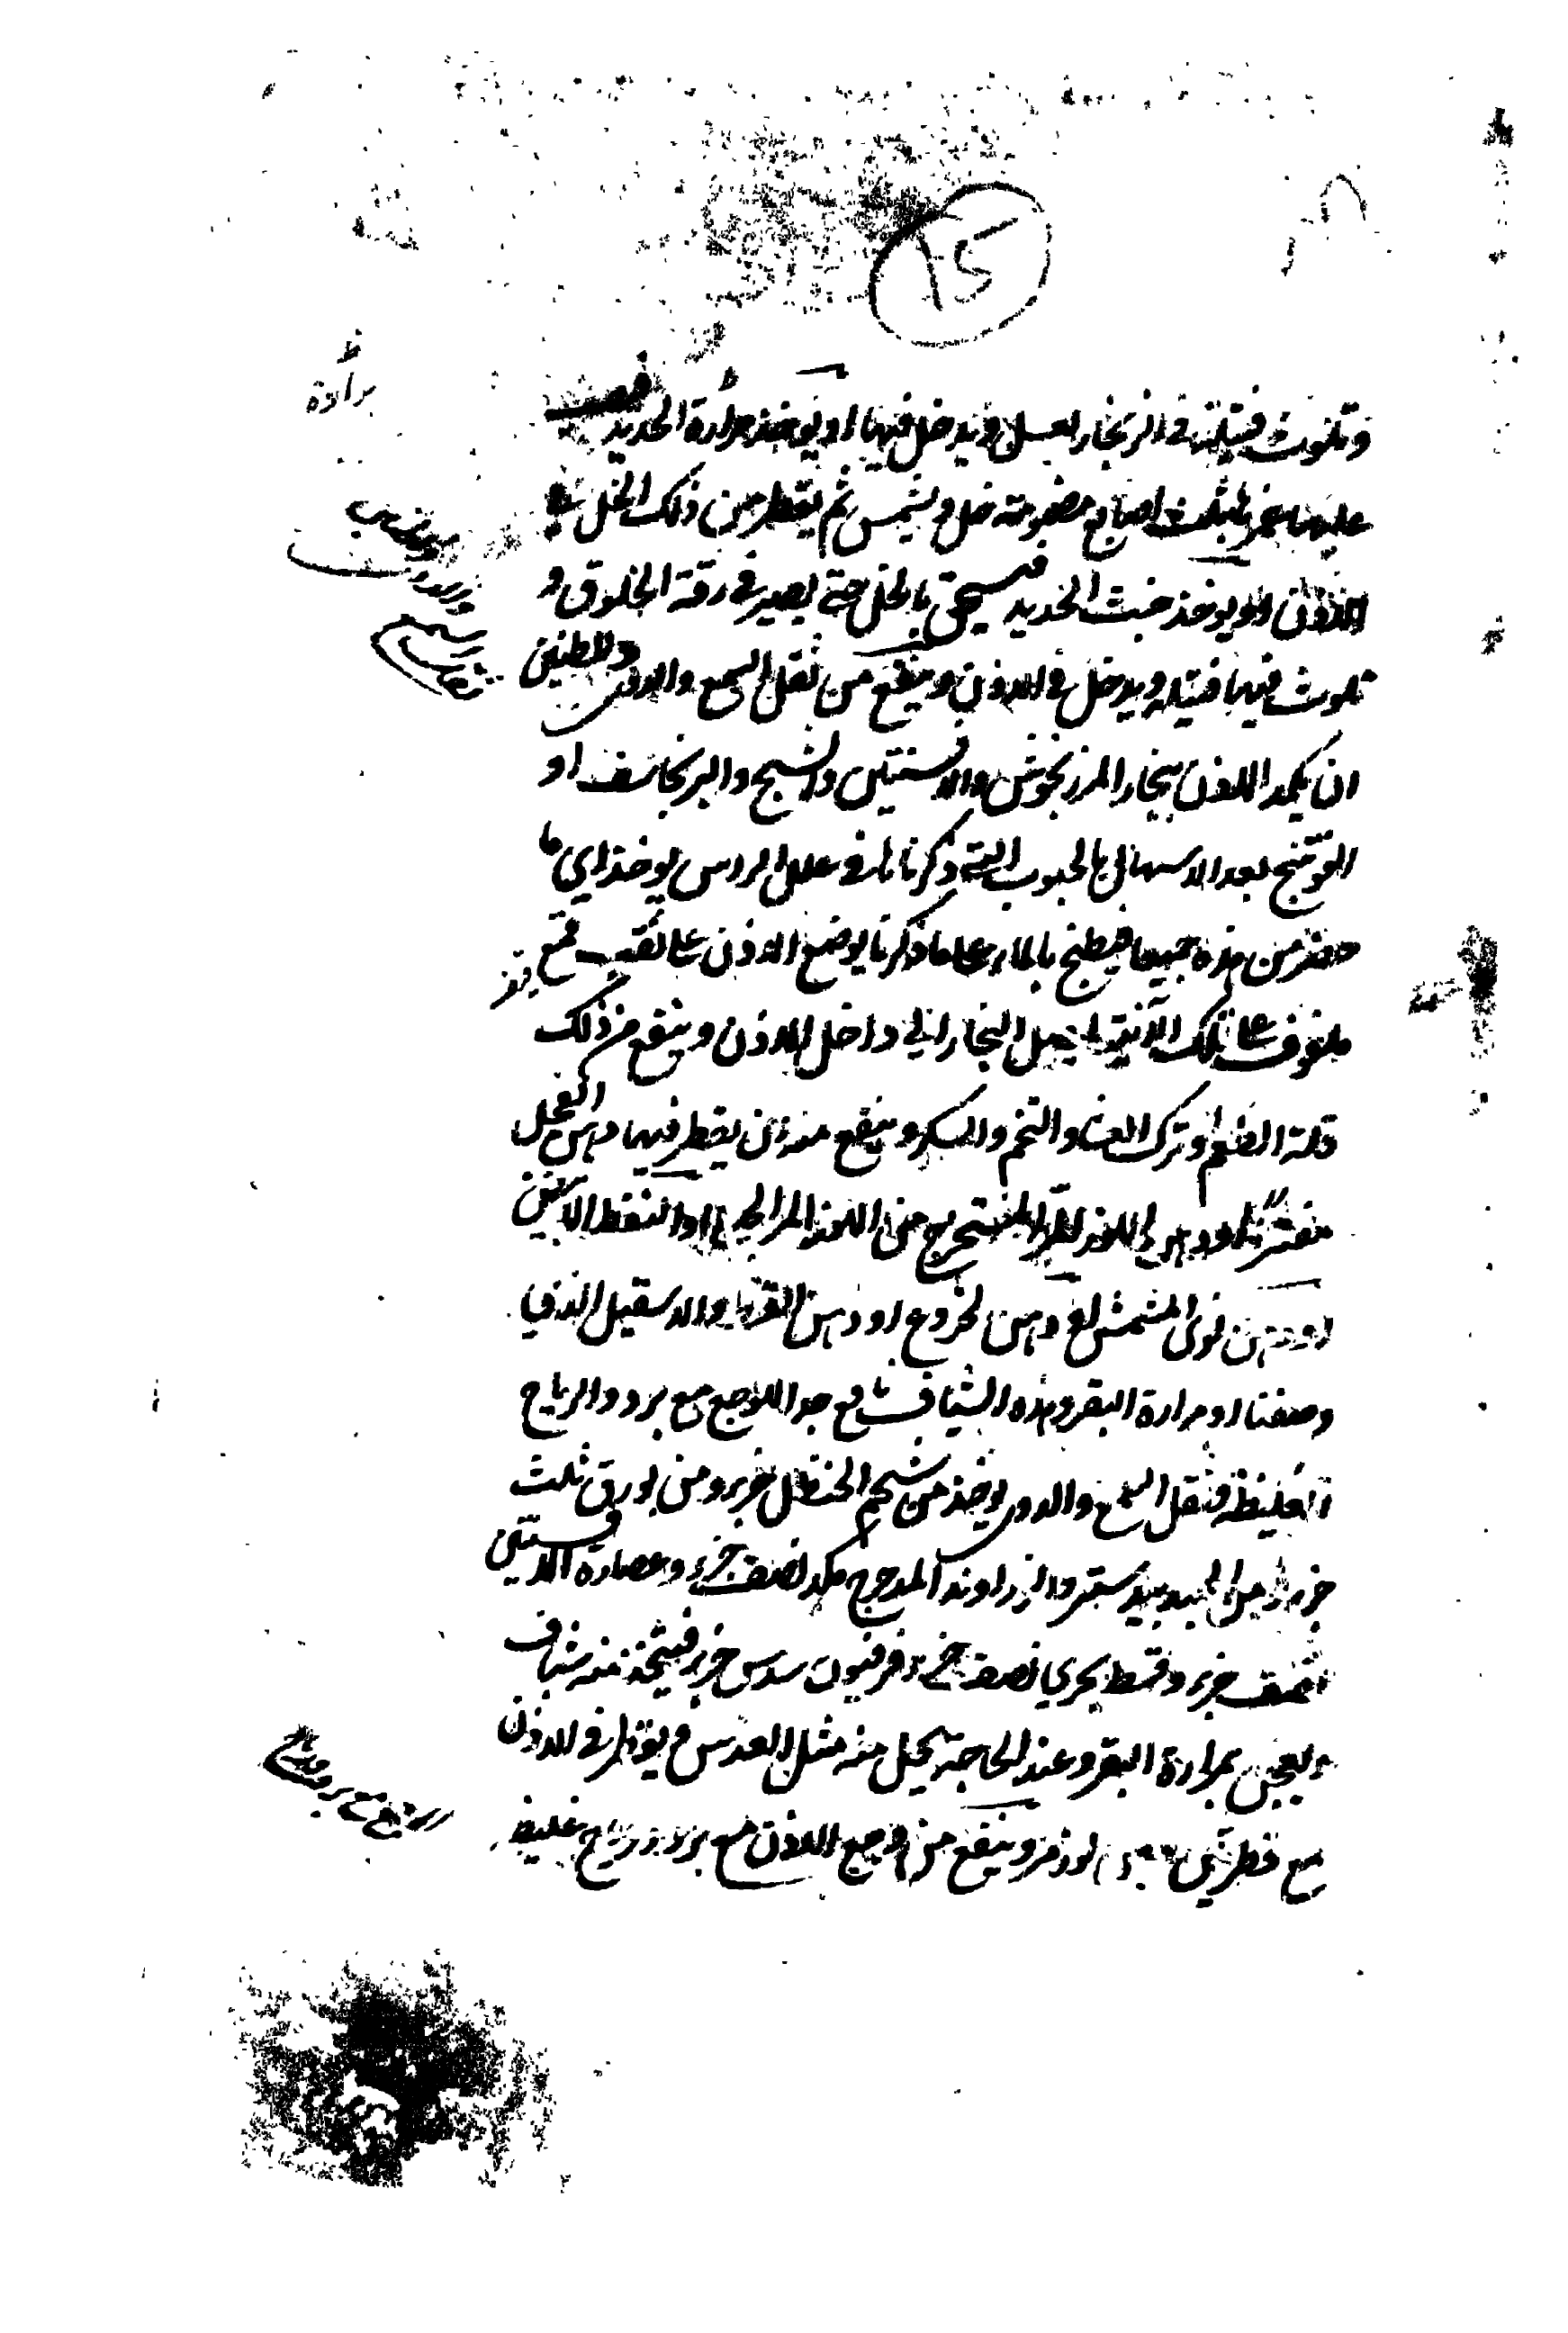 15
وتلوث فتيلة في الزنجار بعسل ويدخل فيها او يوخذ برادة الحديد فيصب
برادة
عليها غمرها بثلث اصابع مضمومة خل ويشمس ثم يقطر من ذلك الخل في
الاذن او يوخذ خبث الحديد فيسحق بالخل حتى يصير في رقة الخلوق و
تلوث فيها فتيلة ويدخل في الاذن وينفع من ثقل السمع والدوي والطنين
ان يكمد الاذن ببخار المرزنجوش والافسنتين والشيح والبرنجاسف او
الفوتنج بعد الاسهال بالحبوب التي ذكرناها في علل الراس يوخذ اي ما
حضر من هذه جميعا فيطبخ بالماء على ما ذكرنا يوضع الاذن على ثقب قمع
ملفوف على تلك الآنية ليصل البخار الى داخل الاذن وينفع من ذلك
قلة الطعم وترك العشاء والتخم والسكر وينفع منه ان يقطر فيها دهن الفجل
مفترًا او دهن اللوز المر المستخرج من اللوز المر الجيد او النفط الابيض
او دهن نوى المشمش او دهن الخروع او دهن القرنا والاسقيل الذي
وصفنا او مرارة البقر وهذه الشياف نافع جدا للوجع مع برد والرياح
الغليظة وثقل السمع والدوي يوخذ من شحم الحنظل جزء ومن بورق ثلث
جزء ومن الجندبيدستر والزراوند المدحرج مكد نصف جزء وعصارة الافسنتين
نصف جزء وقسط بحري نصف جزء فرفيون سدس جزء فيتخذ منه شياف
ويعجن بمرارة البقر وعند الحاجة يحل منه مثل العدس ويقطر في الاذن
مع قطرتين دهن لوز مر وينفع من وجع الاذن مع برد ورياح غليظة